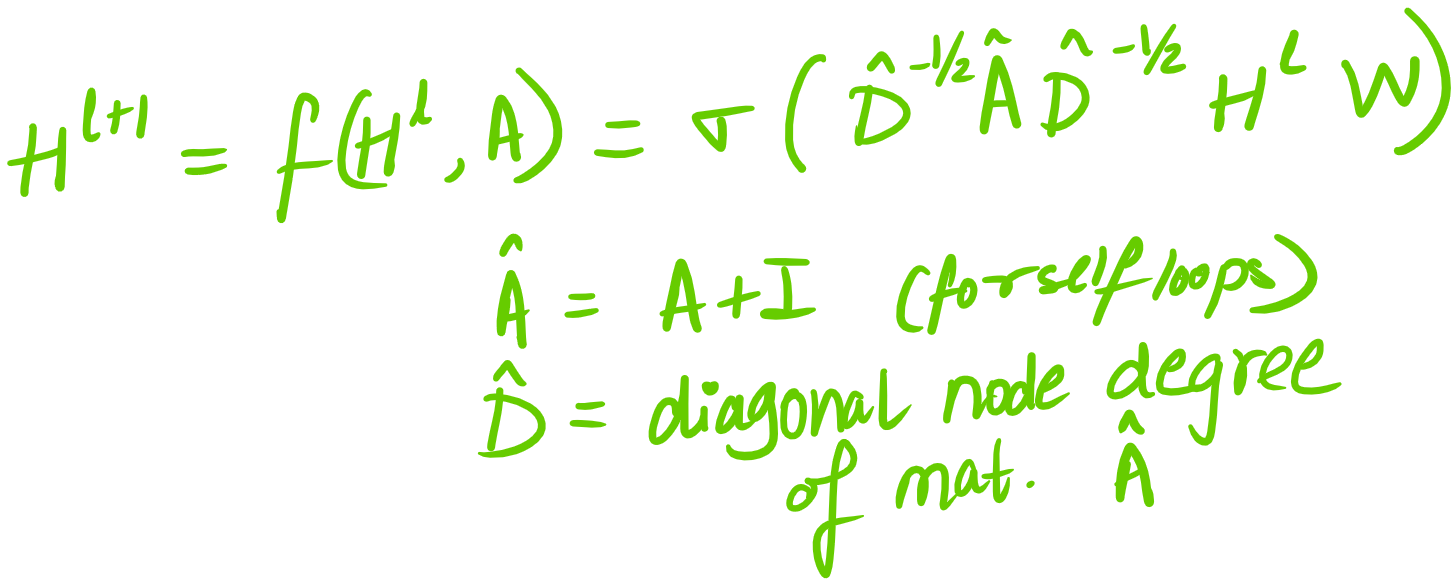 H^{l+1} = f(H^l, A) = σ(D̂^{-1/2} Â D̂^{-1/2} H^l W)
Â = A+I (for self loops)
D̂ = diagonal node degree
of mat. Â